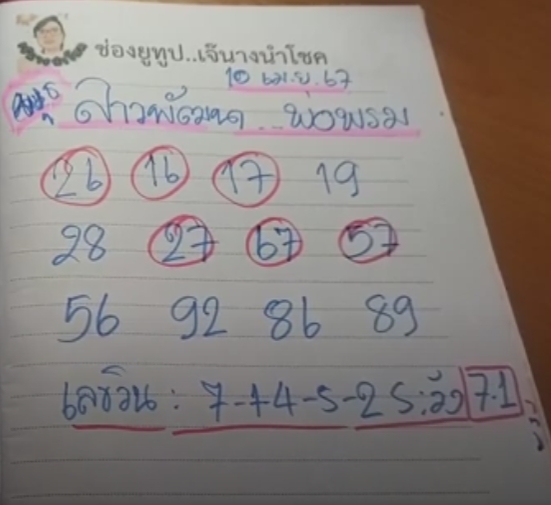 ช่องยูทูป..เจ๊นางนำโชค
10 เม.ย. 67
สาวพัฒนา...พ่อพรม
26 16 17 19
28 27 67 57
56 92 86 89
เลขวิน : 7-1-4-5-2 ระวัง 7.1